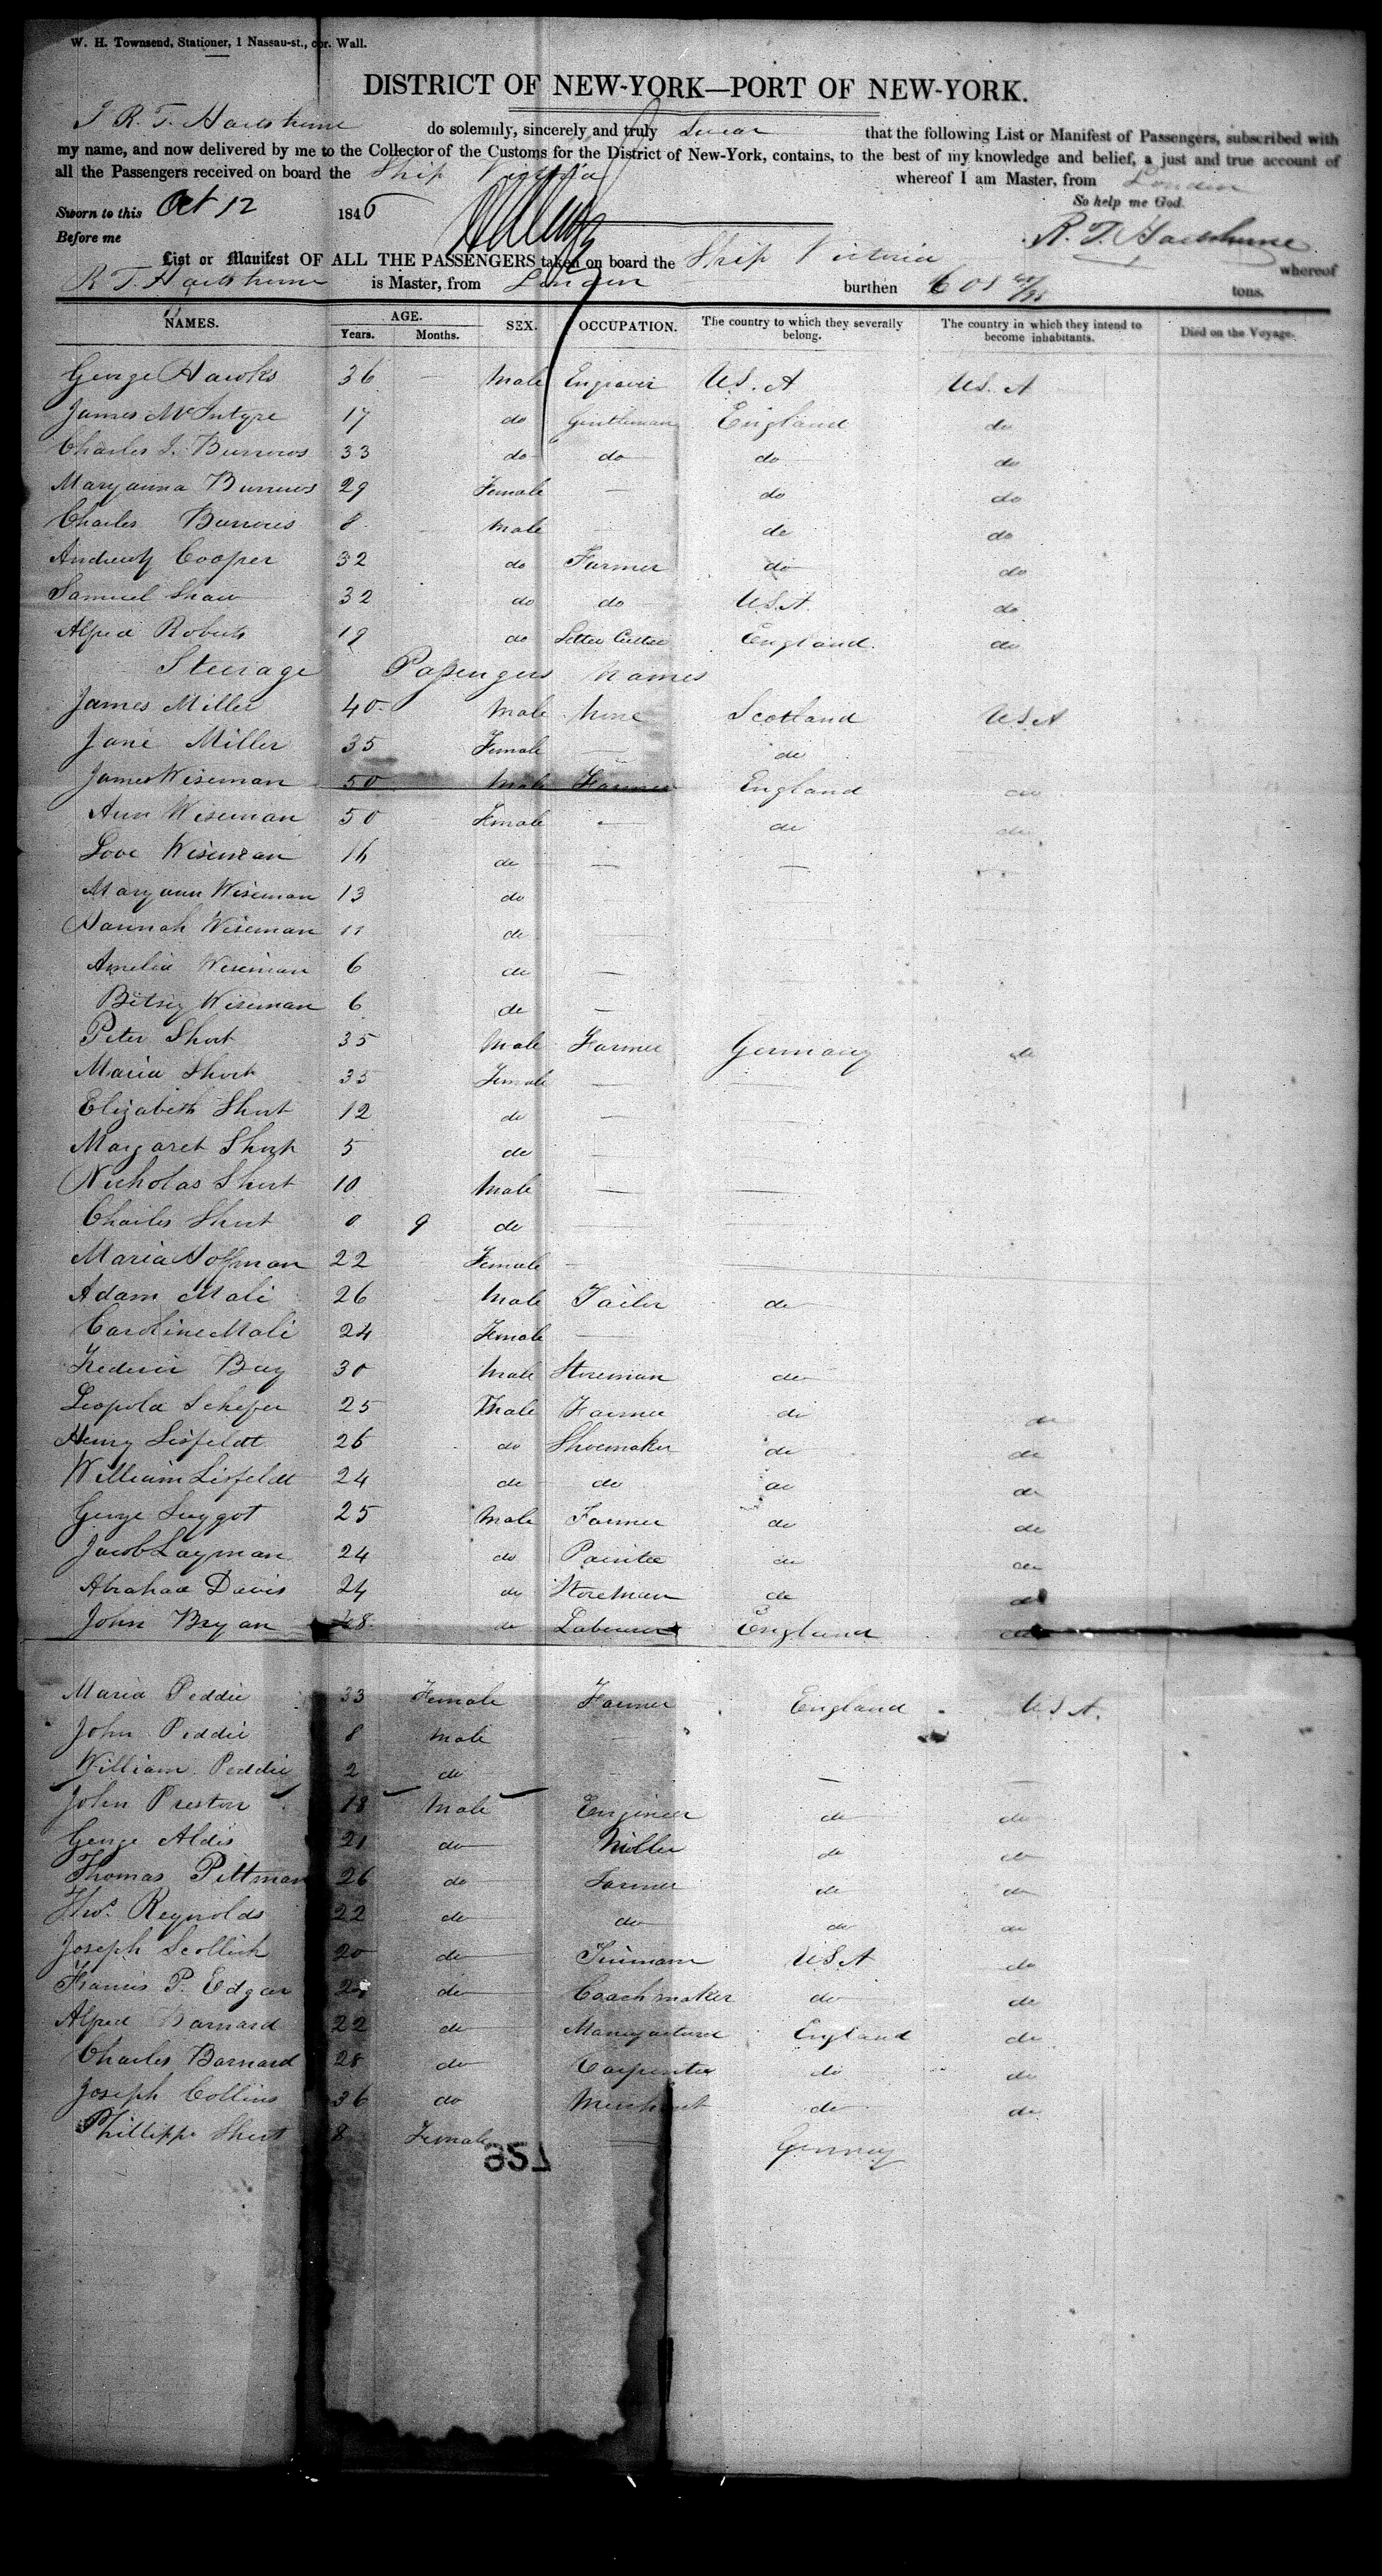 W. H. Townsend, Stationer, 1 Nassau-st., cor. Wall.
DISTRICT OF NEW-YORK—PORT OF NEW-YORK.
I R. T. do solemnly, sincerely and truly swear that the following List or Manifest of Passengers, subscribed with
my name, and now delivered by me to the Collector of the Customs for the District of New-York, contains, to the best of my knowledge and belief, a just and true account of
all the Passengers received on board the Ship Victoria whereof I am Master, from London
So help me God.
Sworn to this Oct 12 1846
Before me R. T.
List or Manifest OF ALL THE PASSENGERS taken on board the Ship Victoria whereof
R T. is Master, from London burthen 608 tons.
NAMES. AGE. Years. Months. SEX. OCCUPATION. The country to which they severally belong. The country in which they intend to become inhabitants. Died on the Voyage.
George Hawks 36 — Male Engraver U.S. A U.S. A
James McIntyre 17 do Gentleman England do
Charles J. Burrows 33 do do do do
Maryanna Burrows 29 Female — do do
Charles Burrows 8 Male do do
Andrew Cooper 32 do Farmer do do
Samuel Shaw 32 do do U.S.A. do
Alfred Roberts 19 do Letter Cutter England. do
Steerage Passengers Names
James Miller 40 Male None Scotland U.S.A
Jane Miller 35 Female — do
James Wiseman 50 Male Farmer England do
Ann Wiseman 50 Female — do do
Love Wiseman 16 do — —
Maryann Wiseman 13 do
Hannah Wiseman 11 do
Amelia Wiseman 6 do —
Betsey Wiseman 6 do —
Peter Short 35 Male Farmer Germany do
Maria Short 35 Female —
Elizabeth Short 12 do —
Margaret Short 5 do —
Nicholas Short 10 Male — —
Charles Short 0 9 do — —
Maria Hoffman 22 Female —
Adam Mali 26 Male Tailor do
Caroline Mali 24 Female —
Frederic Bay 30 Male Storeman do
Leopold Schefer 25 Male Farmer do do
Henry Lisfeldt 26 do Shoemaker do do
William Lisfeldt 24 do do do do
George 25 Male Farmer do do
Jacob Layman 24 do Painter do do
Davis 24 do Storeman do do
John Bryan 48 do Labourer England do
Maria Peddie 33 Female Farmer England U.S.A.
John Peddie 8 Male —
William Peddie 2 do — —
John Preston 18 Male Engineer do do
George Aldis 21 do Miller do do
Thomas Pittman 26 do Farmer do do
Thos. Reynolds 22 do do do do
Joseph 20 do Tinman U.S.A do
Francis P. Edgar do Coachmaker do do
Alfred Barnard 22 do Manufacturer England do
Charles Barnard 28 do Carpenter do do
Joseph Collins 36 do Merchant do do
Phillippe Short 8 Female —